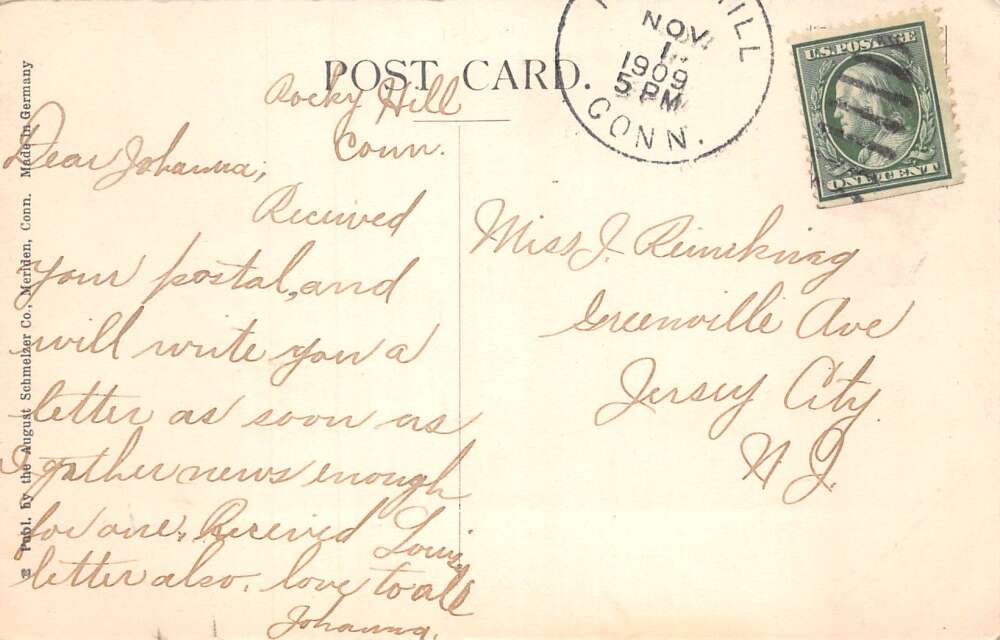 POST CARD.
ROCKY HILL
NOV
1
1909
5 PM
CONN.
U.S. POSTAGE
ONE CENT
Rocky Hill
Conn.
Dear Johanna,
Received
your postal, and
will write you a
letter as soon as
I gather news enough
for one. Received Louis
letter also. love to all
Johanna.
Miss J.
Greenville Ave
Jersey City
N J.
Publ. by the August Schmelzer Co., Meriden, Conn. Made in Germany